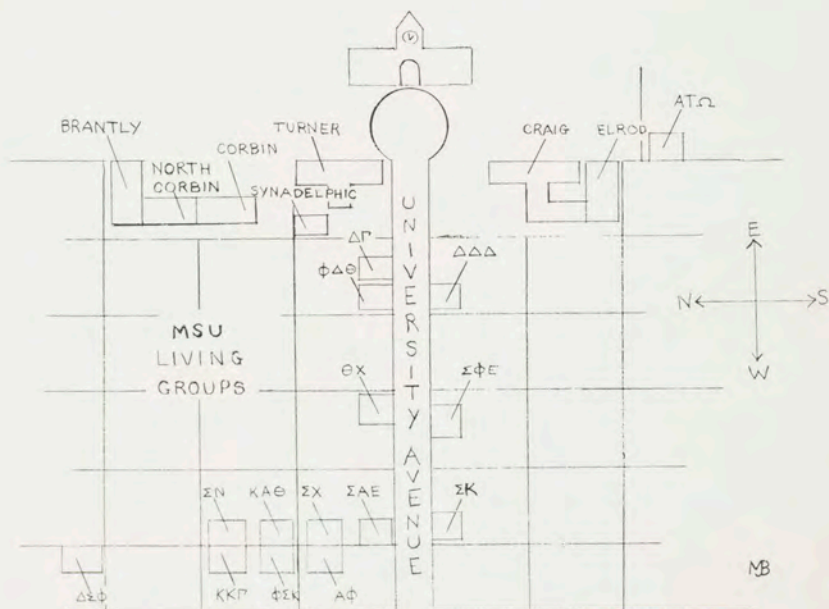 BRANTLY
NORTH
CORBIN
CORBIN
TURNER
SYNADELPHIC
CRAIG
ELROD
ΑΤΩ
UNIVERSITY AVENUE
ΔΓ
ΦΔΘ
ΔΔΔ
E
N
S
W
MSU
LIVING
GROUPS
ΘΧ
ΣΦΕ
ΣΝ
ΚΑΘ
ΣΧ
ΣΑΕ
ΣΚ
ΔΣΦ
ΚΚΓ
ΦΣΚ
ΑΦ
MB